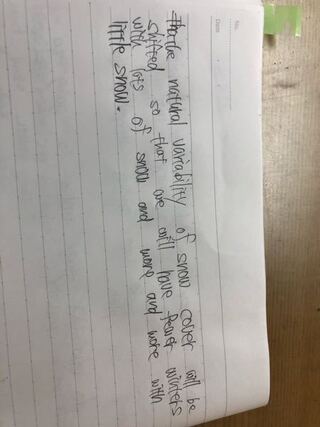 No.
Date
The natural variability of snow cover will be
shifted so that we will have fewer winters
with lots of snow and more and more with
little snow.